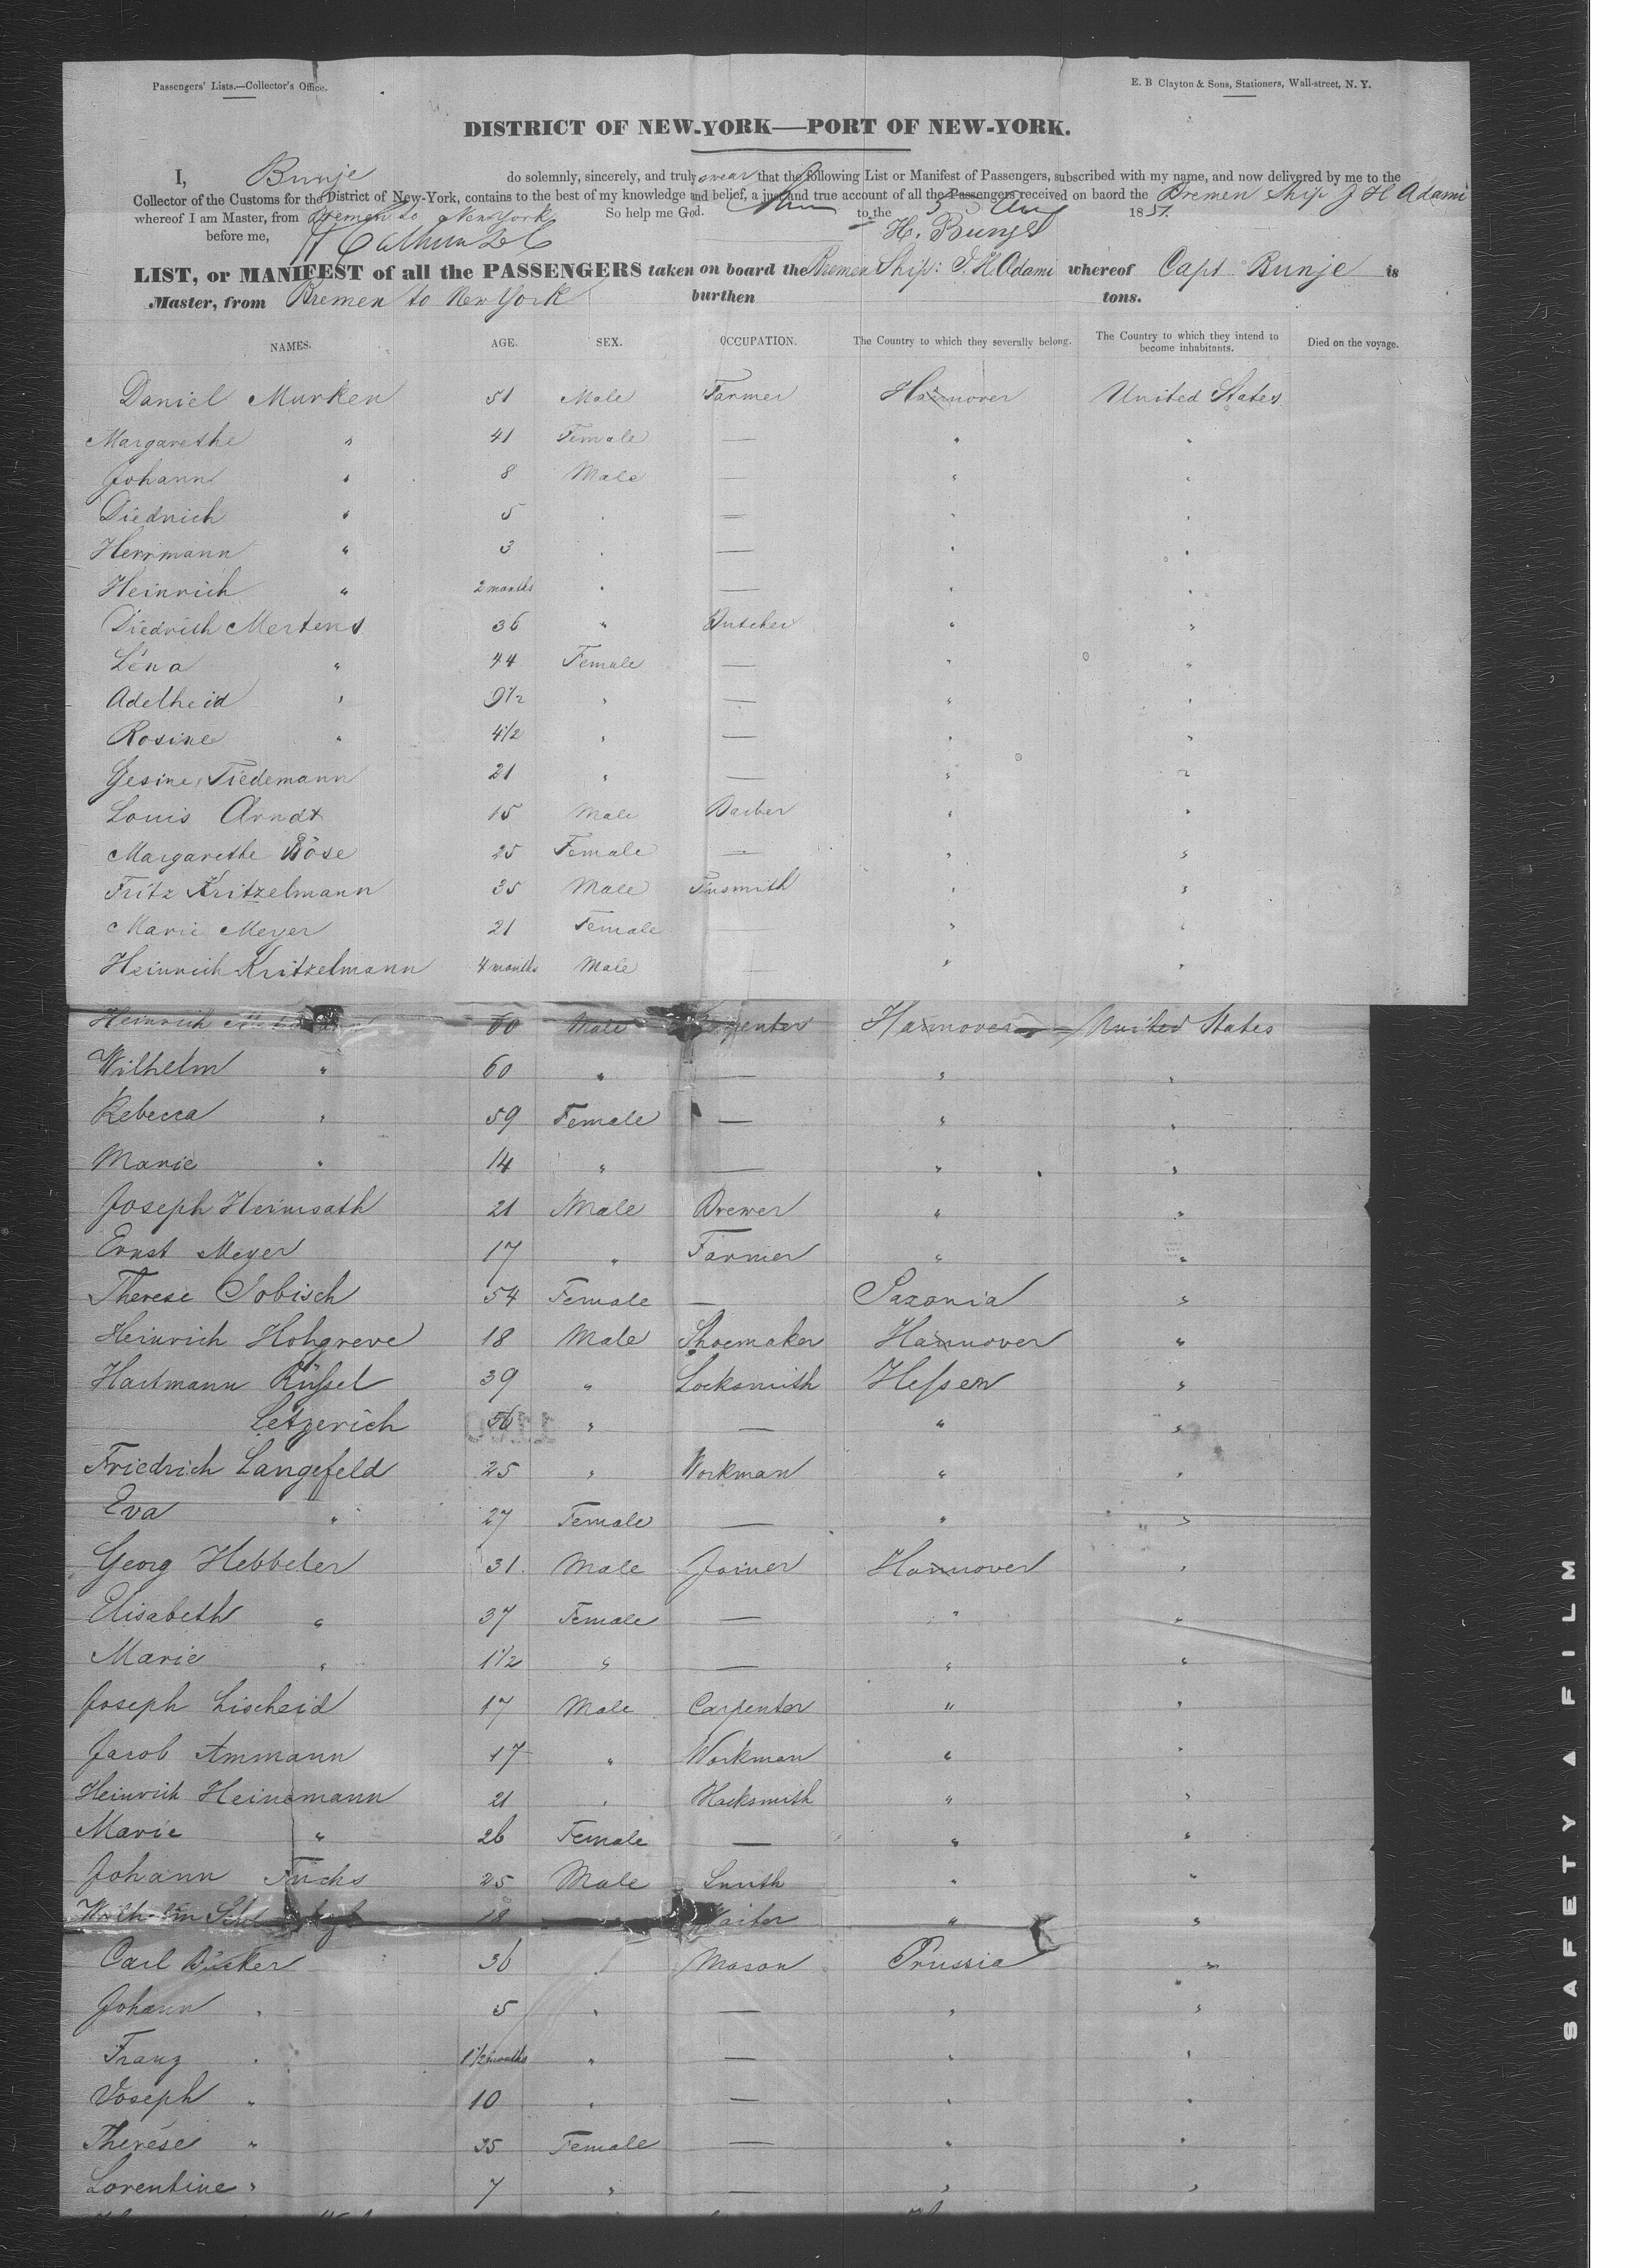 Passengers' Lists.—Collector's Office.
E. B Clayton & Sons, Stationers, Wall-street, N. Y.
DISTRICT OF NEW-YORK—PORT OF NEW-YORK.
I, Bunje do solemnly, sincerely, and truly swear that the following List or Manifest of Passengers, subscribed with my name, and now delivered by me to the
Collector of the Customs for the District of New-York, contains to the best of my knowledge and belief, a just and true account of all the Passengers received on baord the Bremen Ship J H Adami
whereof I am Master, from Bremen to New York So help me God. to the 185
before me, H. Bunje
LIST, or MANIFEST of all the PASSENGERS taken on board the Bremen Ship: J. H Adami whereof Capt Bunje is
Master, from Bremen to New York burthen tons.
NAMES. AGE. SEX. OCCUPATION. The Country to which they severally belong. The Country to which they intend to become inhabitants. Died on the voyage.
Daniel Murken 51 Male Farmer Hannover United States
Margarethe " 41 Female — " "
Johann " 8 Male — " "
Diedrich " 5 " — " "
Herrmann " 3 " — " "
Heinrich " 2 months " — " "
Diedrich Mertens 36 " Butcher " "
Lena " 44 Female — " "
Adelheid " 9 1/2 " — " "
Rosine " 4 1/2 " — " "
Gesine Tiedemann 21 " — " "
Louis Arndt 15 Male Barber " "
Margarethe Böse 25 Female — " "
Fritz Kritzelmann 35 Male Tinsmith " "
Marie Meyer 21 Female — " "
Heinrich Kritzelmann 4 months Male — " "
Heinrich 60 Male Carpenter Hannover United States
Wilhelm " 60 " — " "
Rebecca " 59 Female — " "
Marie " 14 " — " "
Joseph Heimsath 21 Male Brewer " "
Ernst Meyer 17 " Farmer " "
Therese Tobisch 54 Female — Saxonia "
Heinrich Hohgreve 18 Male Shoemaker Hannover "
Hartmann Rüssel 39 " Locksmith Hessen "
Letzerich 56 " — " "
Friedrich Langefeld 25 " Workman " "
Eva " 27 Female — " "
Georg Hebbeler 31. Male Joiner Hannover "
Elisabeth " 37 Female — " "
Marie " 1 1/2 " — " "
Joseph Lischeid 17 Male Carpenter " "
Jacob Ammann 17 " Workman " "
Heinrich Heinemann 21 " Blacksmith " "
Marie " 26 Female — " "
Johann Fuchs 25 Male Smith " "
18 " Waiter " "
Carl Büker 36 " Mason Prussia "
Johann " 5 " — " "
Franz " 1 1/2 months " — " "
Joseph " 10 " — " "
Therese " 35 Female — " "
Lorentine " 7 " — " "
SAFETY A FILM